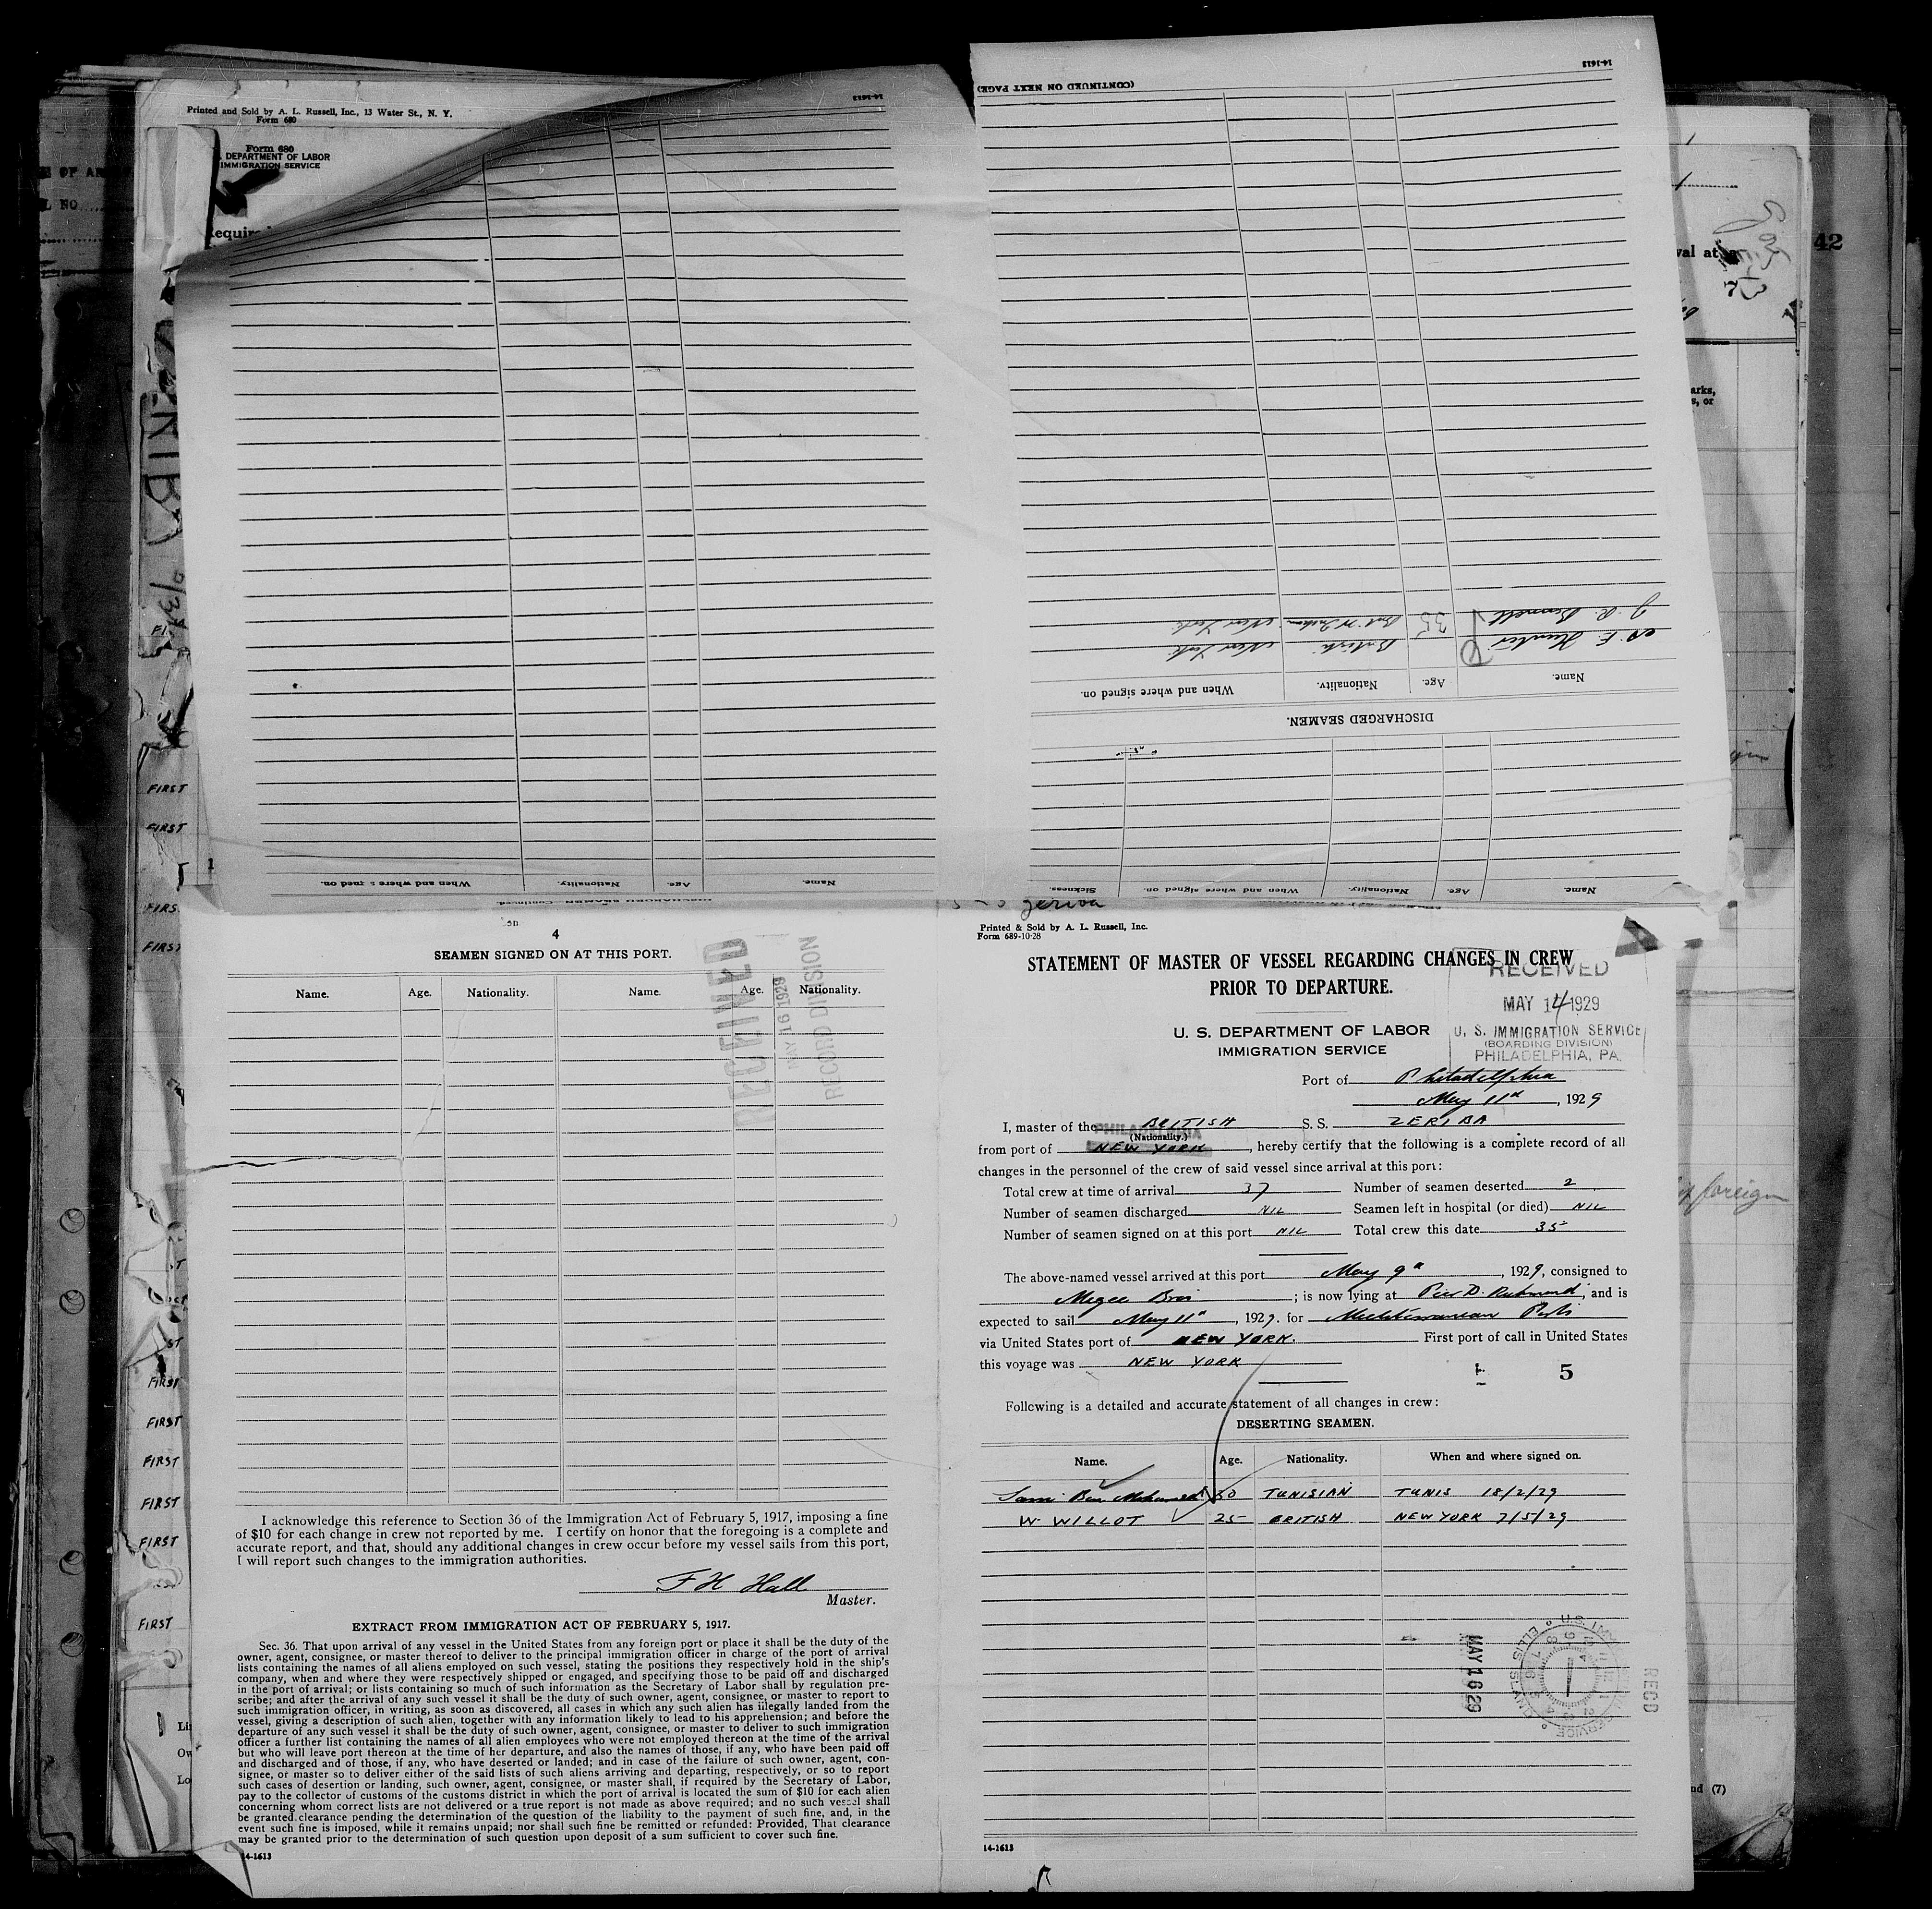 Printed and Sold by A. L. Russell, Inc., 13 Water St., N. Y.
Form 680
Form 680
DEPARTMENT OF LABOR
IMMIGRATION SERVICE
14-1613
14-1613
(CONTINUED ON NEXT PAGE)
42
FIRST
FIRST
FIRST
FIRST
FIRST
FIRST
FIRST
FIRST
FIRST
FIRST
foreign
J. R. Bennett 35 New York
Hunter British New York
Name. Age. Nationality. When and where signed on.
DISCHARGED SEAMEN.
Name. Age. Nationality. When and where signed on. Sickness.
Name. Age. Nationality. When and where signed on.
4
SEAMEN SIGNED ON AT THIS PORT.
Name. Age. Nationality. Name. Age. Nationality.
MAY 16 1929
RECORD DIVISION
I acknowledge this reference to Section 36 of the Immigration Act of February 5, 1917, imposing a fine
of $10 for each change in crew not reported by me. I certify on honor that the foregoing is a complete and
accurate report, and that, should any additional changes in crew occur before my vessel sails from this port,
I will report such changes to the immigration authorities.
F H Hall
Master.
EXTRACT FROM IMMIGRATION ACT OF FEBRUARY 5, 1917.
Sec. 36. That upon arrival of any vessel in the United States from any foreign port or place it shall be the duty of the
owner, agent, consignee, or master thereof to deliver to the principal immigration officer in charge of the port of arrival
lists containing the names of all aliens employed on such vessel, stating the positions they respectively hold in the ship's
company, when and where they were respectively shipped or engaged, and specifying those to be paid off and discharged
in the port of arrival; or lists containing so much of such information as the Secretary of Labor shall by regulation pre-
scribe; and after the arrival of any such vessel it shall be the duty of such owner, agent, consignee, or master to report to
such immigration officer, in writing, as soon as discovered, all cases in which any such alien has illegally landed from the
vessel, giving a description of such alien, together with any information likely to lead to his apprehension; and before the
departure of any such vessel it shall be the duty of such owner, agent, consignee, or master to deliver to such immigration
officer a further list containing the names of all alien employees who were not employed thereon at the time of the arrival
but who will leave port thereon at the time of her departure, and also the names of those, if any, who have been paid off
and discharged and of those, if any, who have deserted or landed; and in case of the failure of such owner, agent, con-
signee, or master so to deliver either of the said lists of such aliens arriving and departing, respectively, or so to report
such cases of desertion or landing, such owner, agent, consignee, or master shall, if required by the Secretary of Labor,
pay to the collector of customs of the customs district in which the port of arrival is located the sum of $10 for each alien
concerning whom correct lists are not delivered or a true report is not made as above required; and no such vessel shall
be granted clearance pending the determination of the question of the liability to the payment of such fine, and, in the
event such fine is imposed, while it remains unpaid; nor shall such fine be remitted or refunded: Provided, That clearance
may be granted prior to the determination of such question upon deposit of a sum sufficient to cover such fine.
14-1613
Printed & Sold by A. L. Russell, Inc.
Form 689-10-28
STATEMENT OF MASTER OF VESSEL REGARDING CHANGES IN CREW
PRIOR TO DEPARTURE.
RECEIVED
MAY 14 1929
U. S. IMMIGRATION SERVICE
(BOARDING DIVISION)
PHILADELPHIA, PA.
U. S. DEPARTMENT OF LABOR
IMMIGRATION SERVICE
Port of Philadelphia
May 11th, 1929
I, master of the BRITISH S. S. ZERIBA
PHILADELPHIA
(Nationality.)
from port of NEW YORK, hereby certify that the following is a complete record of all
changes in the personnel of the crew of said vessel since arrival at this port:
Total crew at time of arrival 37 Number of seamen deserted 2
Number of seamen discharged NIL Seamen left in hospital (or died) NIL
Number of seamen signed on at this port NIL Total crew this date 35
The above-named vessel arrived at this port May 9th, 1929, consigned to
Megee Bros; is now lying at Pier D. Richmond, and is
expected to sail May 11th, 1929. for Mediterranean Ports
via United States port of NEW YORK. First port of call in United States
this voyage was NEW YORK
5
Following is a detailed and accurate statement of all changes in crew:
DESERTING SEAMEN.
Name. Age. Nationality. When and where signed on.
Sami Ben Mohamed 30 TUNISIAN TUNIS 18/2/29
W. WILLOT 25 BRITISH NEW YORK 7/5/29
MAY 16 29
RECD
14-1613